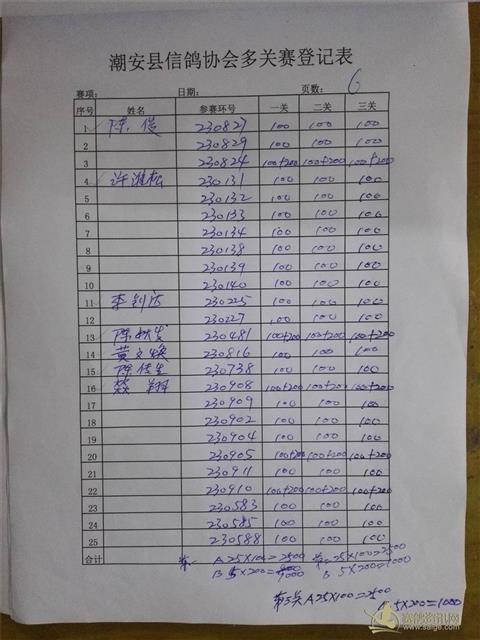 潮安县信鸽协会多关赛登记表
赛项: 日期: 页数: 6
序号 姓名 参赛环号 一关 二关 三关
1 陈 230827 100 100 100
2 230829 100 100 100
3 230824 100+200 100+200 100+200
4 许淮松 230131 100 100 100
5 230132 100 100 100
6 230133 100 100 100
7 230134 100 100 100
8 230138 100 100 100
9 230139 100 100 100
10 230140 100 100 100
11 李钊法 230225 100 100 100
12 230227 100 100 100
13 陈 230481 100+200 100+200 100+200
14 黄文焕 230816 100 100 100
15 陈佳生 230738 100 100 100
16 翔 230908 100+200 100+200 100+200
17 230909 100 100 100
18 230902 100 100 100
19 230904 100 100 100
20 230905 100+200 100+200 100+200
21 230911 100 100 100
22 230910 100+200 100+200 100+200
23 230583 100 100 100
24 230585 100 100 100
25 230588 100 100 100
合计 第一 A 25×100=2500 第二 25×100=2500
B 5×200=1000 B 5×200=1000
第三关 A 25×100=2500
5×200=1000
www.saige.com